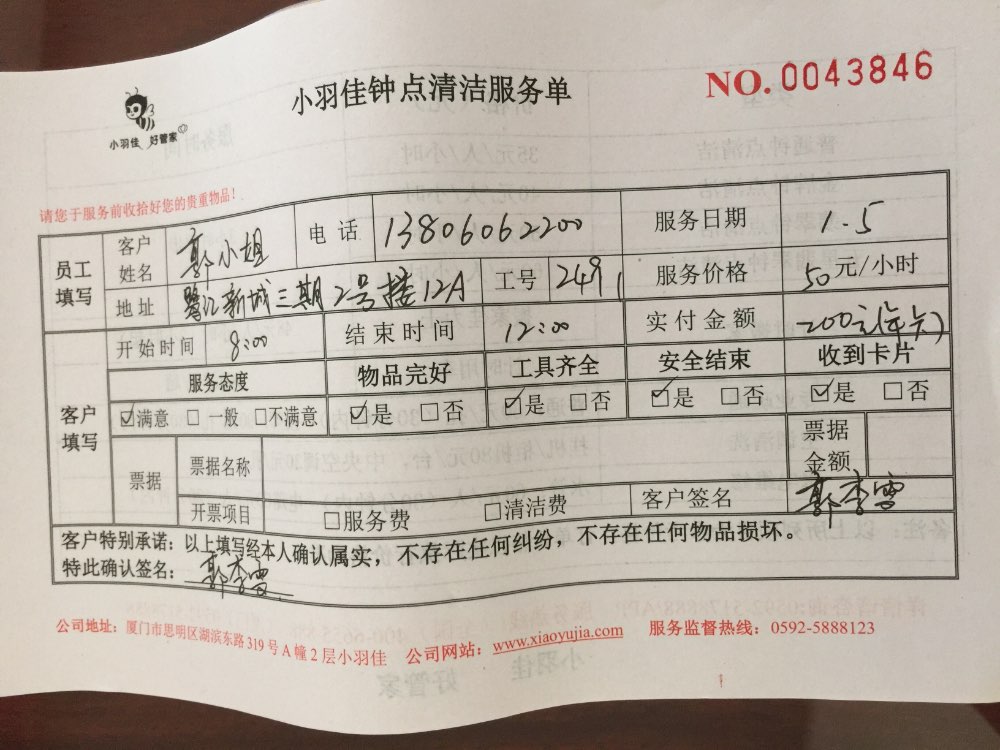 小羽佳钟点清洁服务单
NO. 0043846
小羽佳 好管家
请您于服务前收拾好您的贵重物品！
员工填写 客户姓名 郭小姐 电话 13806062200 服务日期 1.5
地址 鹭江新城三期2号楼12A 工号 2491 服务价格 50元/小时
开始时间 8:00 结束时间 12:00 实付金额 200元(年卡)
客户填写 服务态度 物品完好 工具齐全 安全结束 收到卡片
☑满意 □一般 □不满意 ☑是 □否 ☑是 □否 ☑是 □否 ☑是 □否
票据 票据名称 票据金额
开票项目 □服务费 □清洁费 客户签名 郭李雪
客户特别承诺：以上填写经本人确认属实，不存在任何纠纷，不存在任何物品损坏。
特此确认签名：郭李雪
公司地址：厦门市思明区湖滨东路319号A幢2层小羽佳 公司网站：www.xiaoyujia.com 服务监督热线：0592-5888123